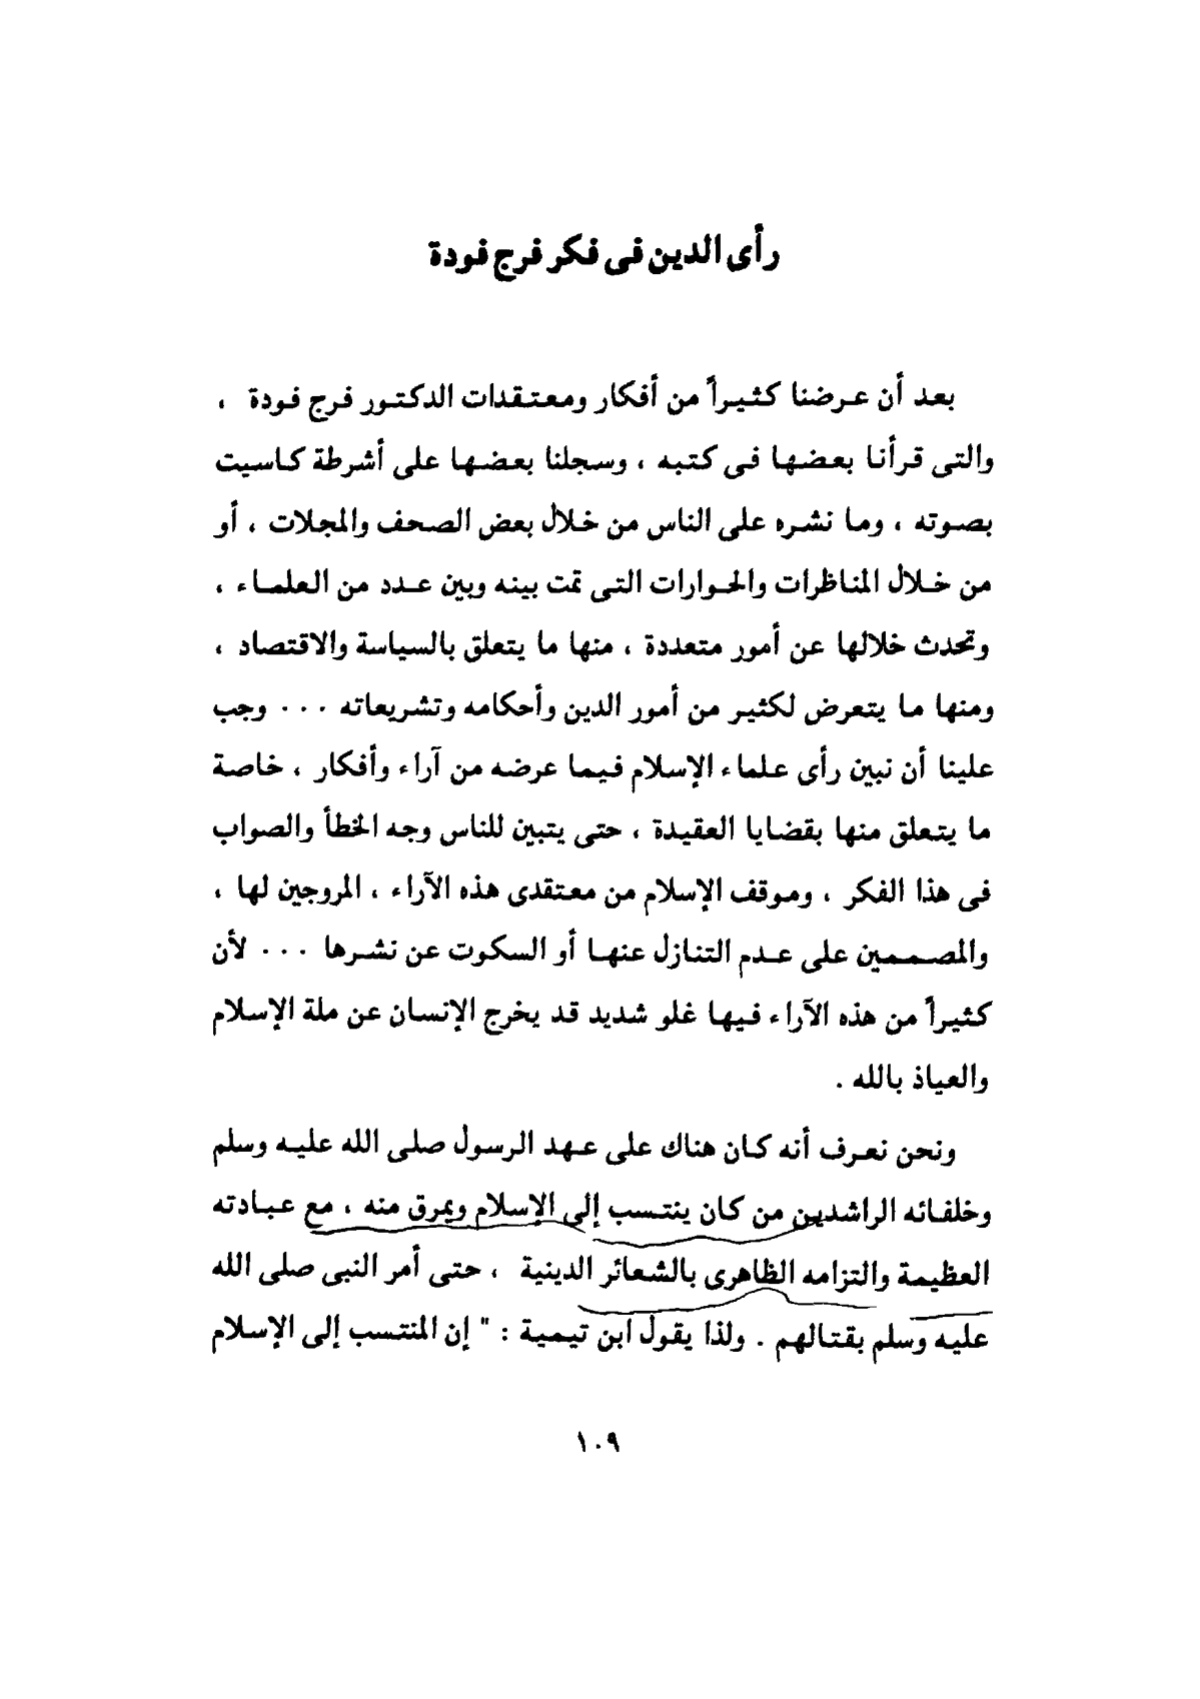 رأى الدين فى فكر فرج فودة
بعد أن عرضنا كثيراً من أفكار ومعتقدات الدكتور فرج فودة ،
والتى قرأنا بعضها فى كتبه ، وسجلنا بعضها على أشرطة كاسيت
بصوته ، وما نشره على الناس من خلال بعض الصحف والمجلات ، أو
من خلال المناظرات والحوارات التى تمت بينه وبين عدد من العلماء ،
وتحدث خلالها عن أمور متعددة ، منها ما يتعلق بالسياسة والاقتصاد ،
ومنها ما يتعرض لكثير من أمور الدين وأحكامه وتشريعاته ... وجب
علينا أن نبين رأى علماء الإسلام فيما عرضه من آراء وأفكار ، خاصة
ما يتعلق منها بقضايا العقيدة ، حتى يتبين للناس وجه الخطأ والصواب
فى هذا الفكر ، وموقف الإسلام من معتقدى هذه الآراء ، المروجين لها ،
والمصممين على عدم التنازل عنها أو السكوت عن نشرها ... لأن
كثيراً من هذه الآراء فيها غلو شديد قد يخرج الإنسان عن ملة الإسلام
والعياذ بالله .
ونحن نعرف أنه كان هناك على عهد الرسول صلى الله عليه وسلم
وخلفائه الراشدين من كان ينتسب إلى الإسلام ويمرق منه ، مع عبادته
العظيمة والتزامه الظاهرى بالشعائر الدينية ، حتى أمر النبى صلى الله
عليه وسلم بقتالهم . ولذا يقول ابن تيمية : " إن المنتسب إلى الإسلام
١٠٩